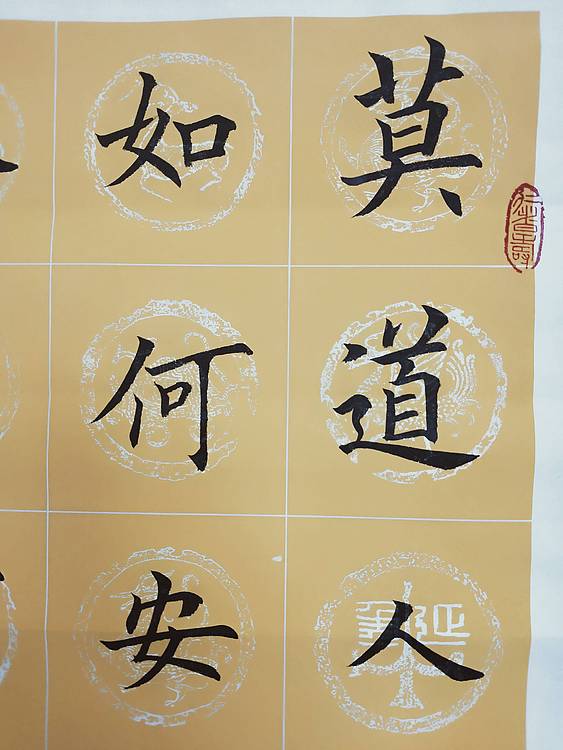 莫道人
如何安